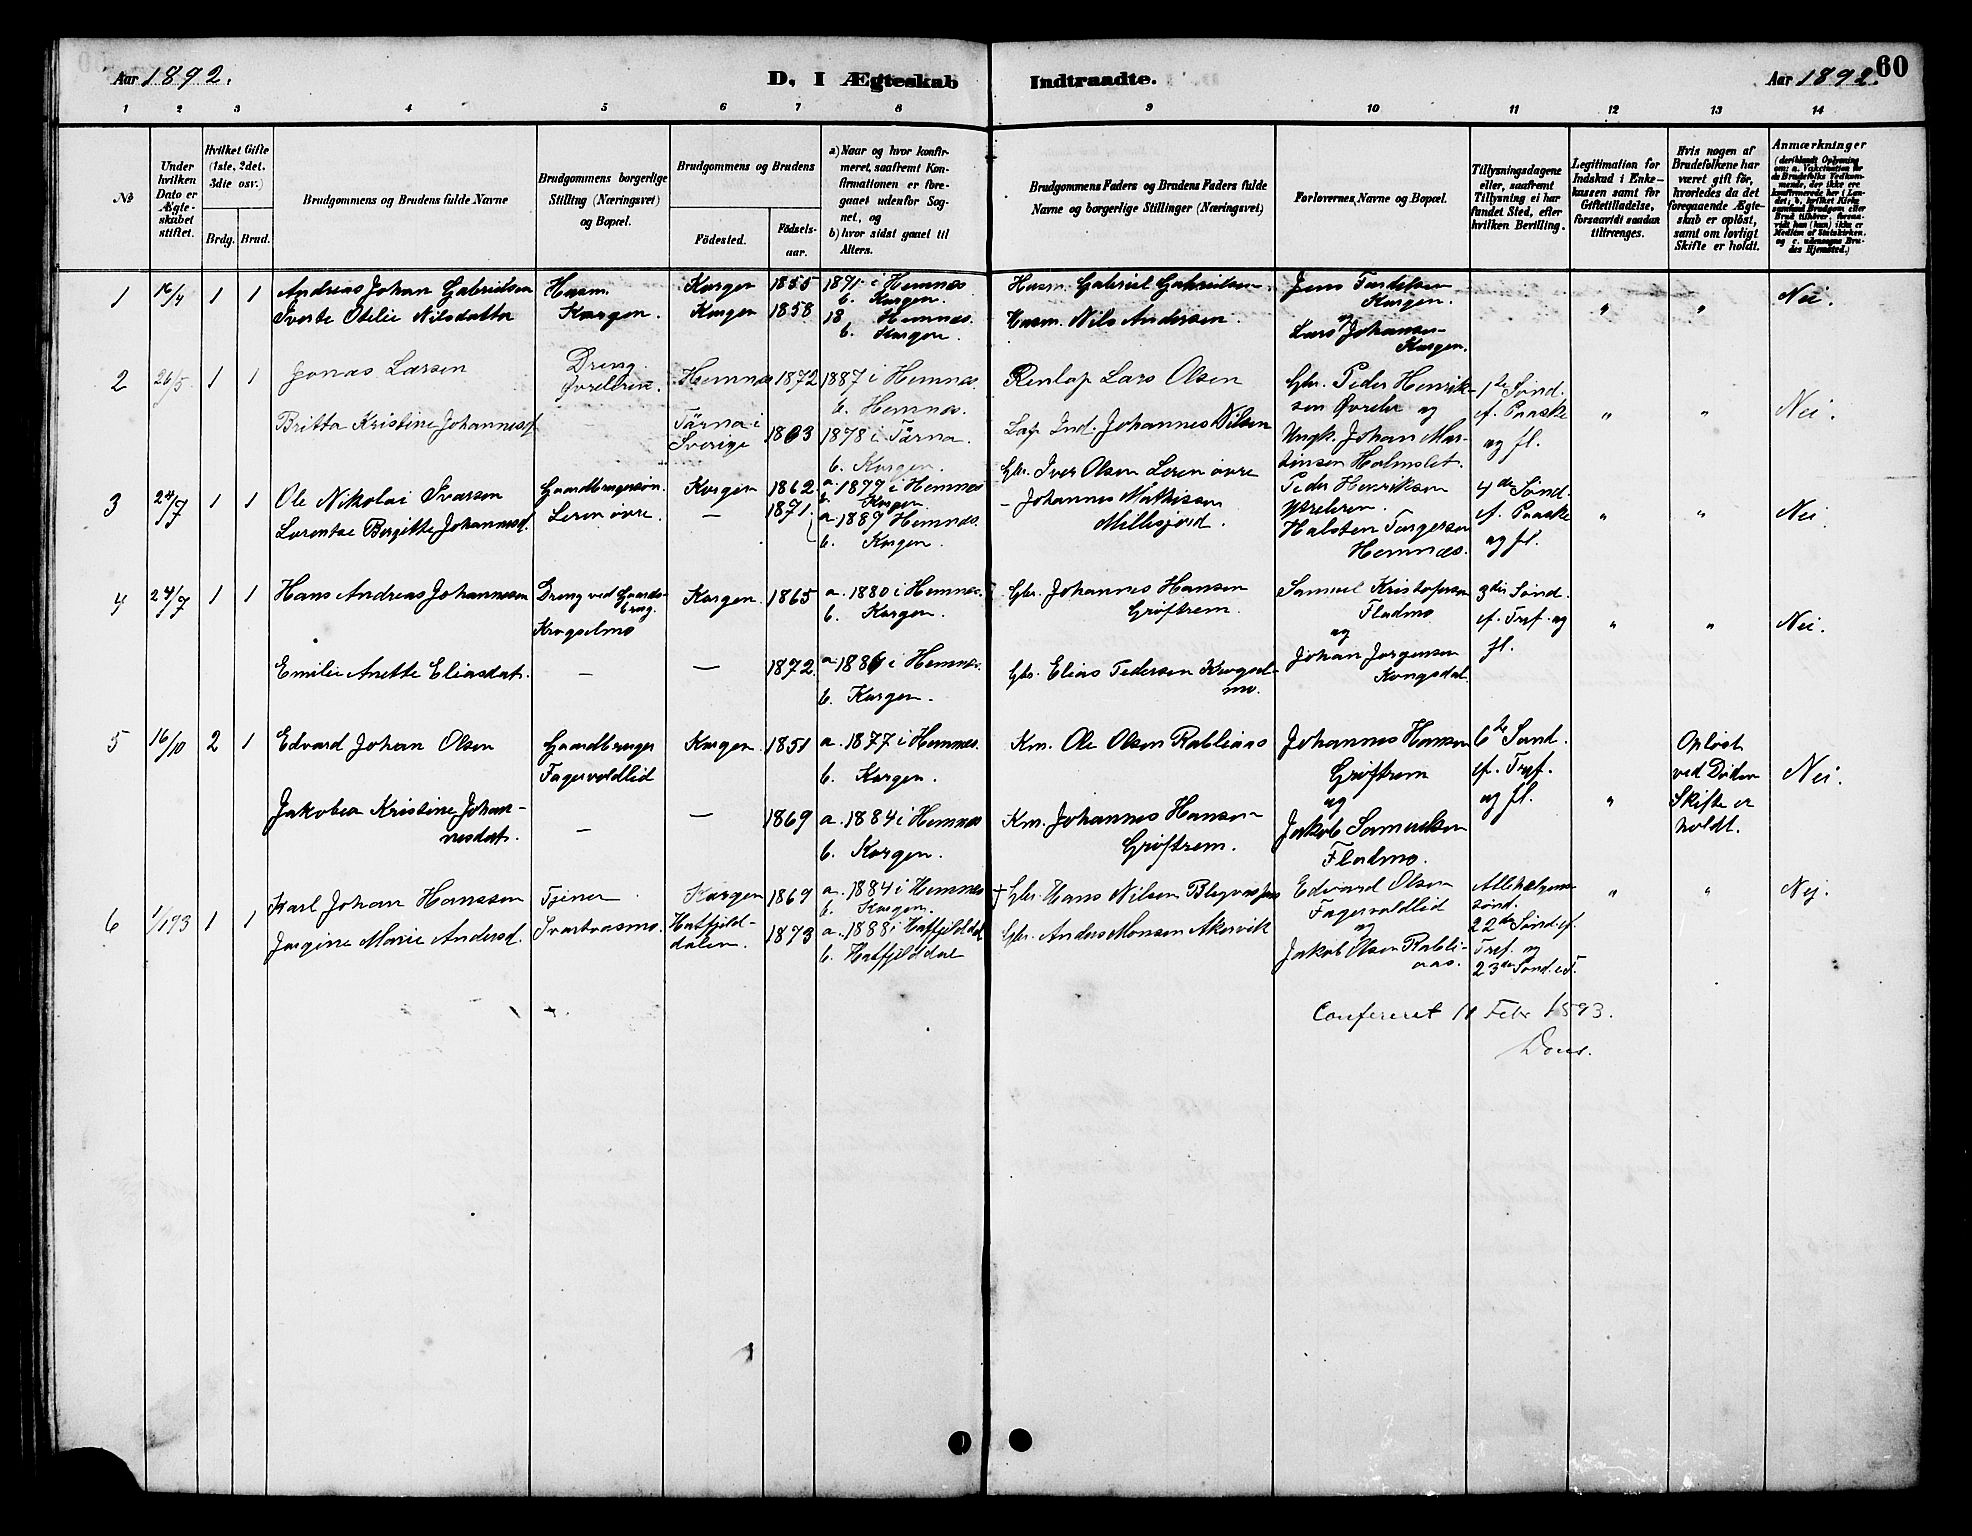 Aar 1892.
D. I Ægteskab Indtraadte.
Aar 1892.
60
1 2 3 4 5 6 7 8 9 10 11 12 13 14
No
Under hvilken Dato er Ægteskabet stiftet.
Hvilket Gifte (1ste, 2det, 3die osv.)
Brdg. Brud.
Brudgommens og Brudens fulde Navne
Brudgommens borgerlige Stilling (Næringsvei) og Bopæl.
Brudgommens og Brudens
Födested.
Födselsaar.
a) Naar og hvor konfirmeret, saafremt Konfirmationen er foregaaet udenfor Sognet, og
b) hvor sidst gaaet til Alters.
Brudgommens Faders og Brudens Faders fulde Navne og borgerlige Stillinger (Næringsvei)
Forlovernes, Navne og Bopæl.
Tillysningsdagene eller, saafremt Tillysning ei har fundet Sted, efter hvilken Bevilling.
Legitimation for Indskud i Enkekassen samt for Giftetilladelse, forsaavidt saadan tiltrænges.
Hvis nogen af Brudefolkene har været gift för, hvorledes da det foregaaende Ægteskab er oplöst, samt om lovligt Skifte er holdt.
Anmærkninger
1 16/4 1 1
Andreas Johan Gabrielsen
Sverte Otelie Nilsdatter
Husm.
Korgen.
Korgen 1855
Korgen 1858
1871 i Hemnæs
b. Korgen.
18 Hemnæs.
b. Korgen.
Husm. Gabriel Gabrielsen.
Husm. Nils Andersen.
Korgen.
og
Lars Johansen
Korgen.
" " Nei.
2 26/5 1 1
Jonas Larsen
Britta Kristine Johannesd.
Dreng
Øvreleren.
–
Hemnæs 1872
Tärna i
Sverige 1863
1887 i Hemnæs.
b. Hemnæs.
1878 i Tärna.
b. Korgen.
Renlap Lars Olsen
Lap Ind. Johannes Nilsen
Gbr. Peder Henrik-
sen Øvreler og
Ungk. Johan Mar-
tinsen Holmslet.
1ste Sønd.
ef. Paaske
og fl.
" " Nei.
3 24/7 1 1
Ole Nikolai Ivarsen
Lorentse Birgitte Johannesd.
Gaardbrugersøn
Leren øvre.
Korgen 1862
– 1871.
a. 1877 i Hemnæs
b. Korgen.
a. 1887 Hemnæs.
b. Korgen.
Gbr. Iver Olsen Leren øvre
– Johannes Mathisen
Millesjord.
Peder Henriksen
Øvreleren.
Halsten Torgersen
Hemnæs.
4de Sønd.
ef. Paaske
og fl.
" " Nei.
4 24/7 1 1
Hans Andreas Johannesen
Emilie Anette Eliasdat.
Dreng ved Gaards-
brug.
Krogselmo
–
Korgen 1865
– 1872
a. 1880 i Hemnæs.
b. Korgen.
a. 1886 i Hemnæs.
b. Korgen.
Gbr. Johannes Hansen
Grøftrem.
Gbr. Elias Pedersen Krogsel-
mo.
Samuel Kristofersen
Fladmo
og
Johan Jørgensen
Kongsdal.
3die Sønd.
ef. Tref. og
fl.
" " Nei.
5 16/10 2 1
Edvard Johan Olsen
Jakobea Kristine Johan-
nesdat.
Gaardbruger
Fagervoldlid
–
Korgen 1851
– 1869
a. 1877 i Hemnæs.
b. Korgen.
a. 1884 i Hemnæs
b. Korgen.
Km. Ole Olsen Rabliaas
Km. Johannes Hansen
Grøftrem.
Johannes Hansen
Grøftrem
og
Jakob Samuelsen
Fladmo.
6te Sønd.
ef. Tref.
og fl.
"
Opløst
ved Døden
Skifte er
holdt.
Nei.
6 1/1 93 1 1
Karl Johan Hanssen
Jørgine Marie Andersd.
Tjener
Svartvasmo.
Korgen 1869
Hatfjeld-
dalen. 1873
a. 1884 i Hemnæs
b. Korgen.
a. 1888 i Hatfjelddal
b. Hatfjelddal
† Gbr. Hans Nilsen
Gbr. Anders Monsen Akervik
Edvard Olsen
Fagervoldlid
og
Jakob Olsen Rabli-
aas.
Allehelgens
sønd.
22de Sønd. ef.
Tref. og
23de Sønd. e.T.
" " Nej.
Confereret 11 Febr 1893.